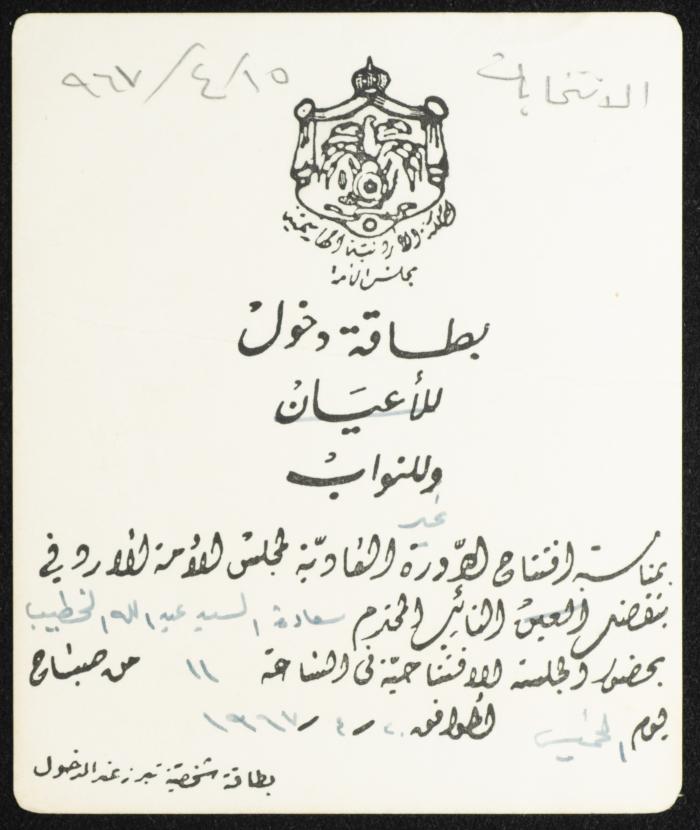 الانتخابات ١٥/٤/٩٦٧
المملكة الأردنية الهاشمية
مجلس الأمة
بطاقة دخول
للأعيان
وللنواب
غير
بمناسبة افتتاح الدورة العادية لمجلس الأمة الأردني
يتفضل العين النائب المحترم سعادة السيد عبد الله الخطيب
بحضور الجلسة الافتتاحية في الساعة ١١ من صباح
يوم الخميس الموافق ٢٠/٤/١٩٦٧
بطاقة شخصية تبرز عند الدخول